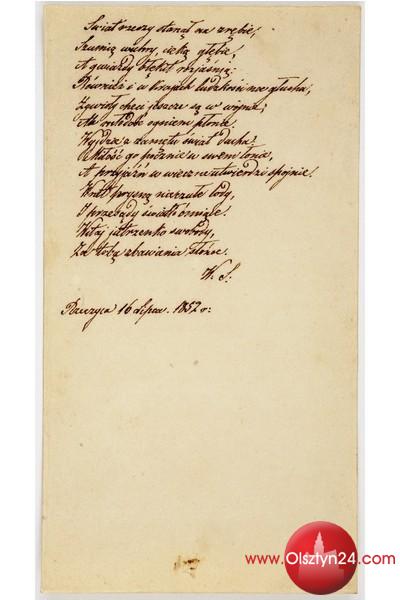 Świat rzeczy stanął na zrębie,
Szumią wichry, cieką głębie,
A gwiazdy błękit rozjaśnią;
Również i w krajach ludzkości noc głucha,
Żywioły chęci jeszcze są w wojnie;
Ale młodość ogniem płonie
Wyjdzie z zamętu świat ducha;
Miłość go pocznie w swem łonie,
A przyjaźń w wieczne utwierdzi spójnie.
Wnet prysną nieczułe lody,
I przesądy światło ćmiące.
Witaj jutrzenko swobody,
Za tobą zbawienia słońce.
W. S:
Rzeczyca 16 Lipca. 1852 r:
www.Olsztyn24.com